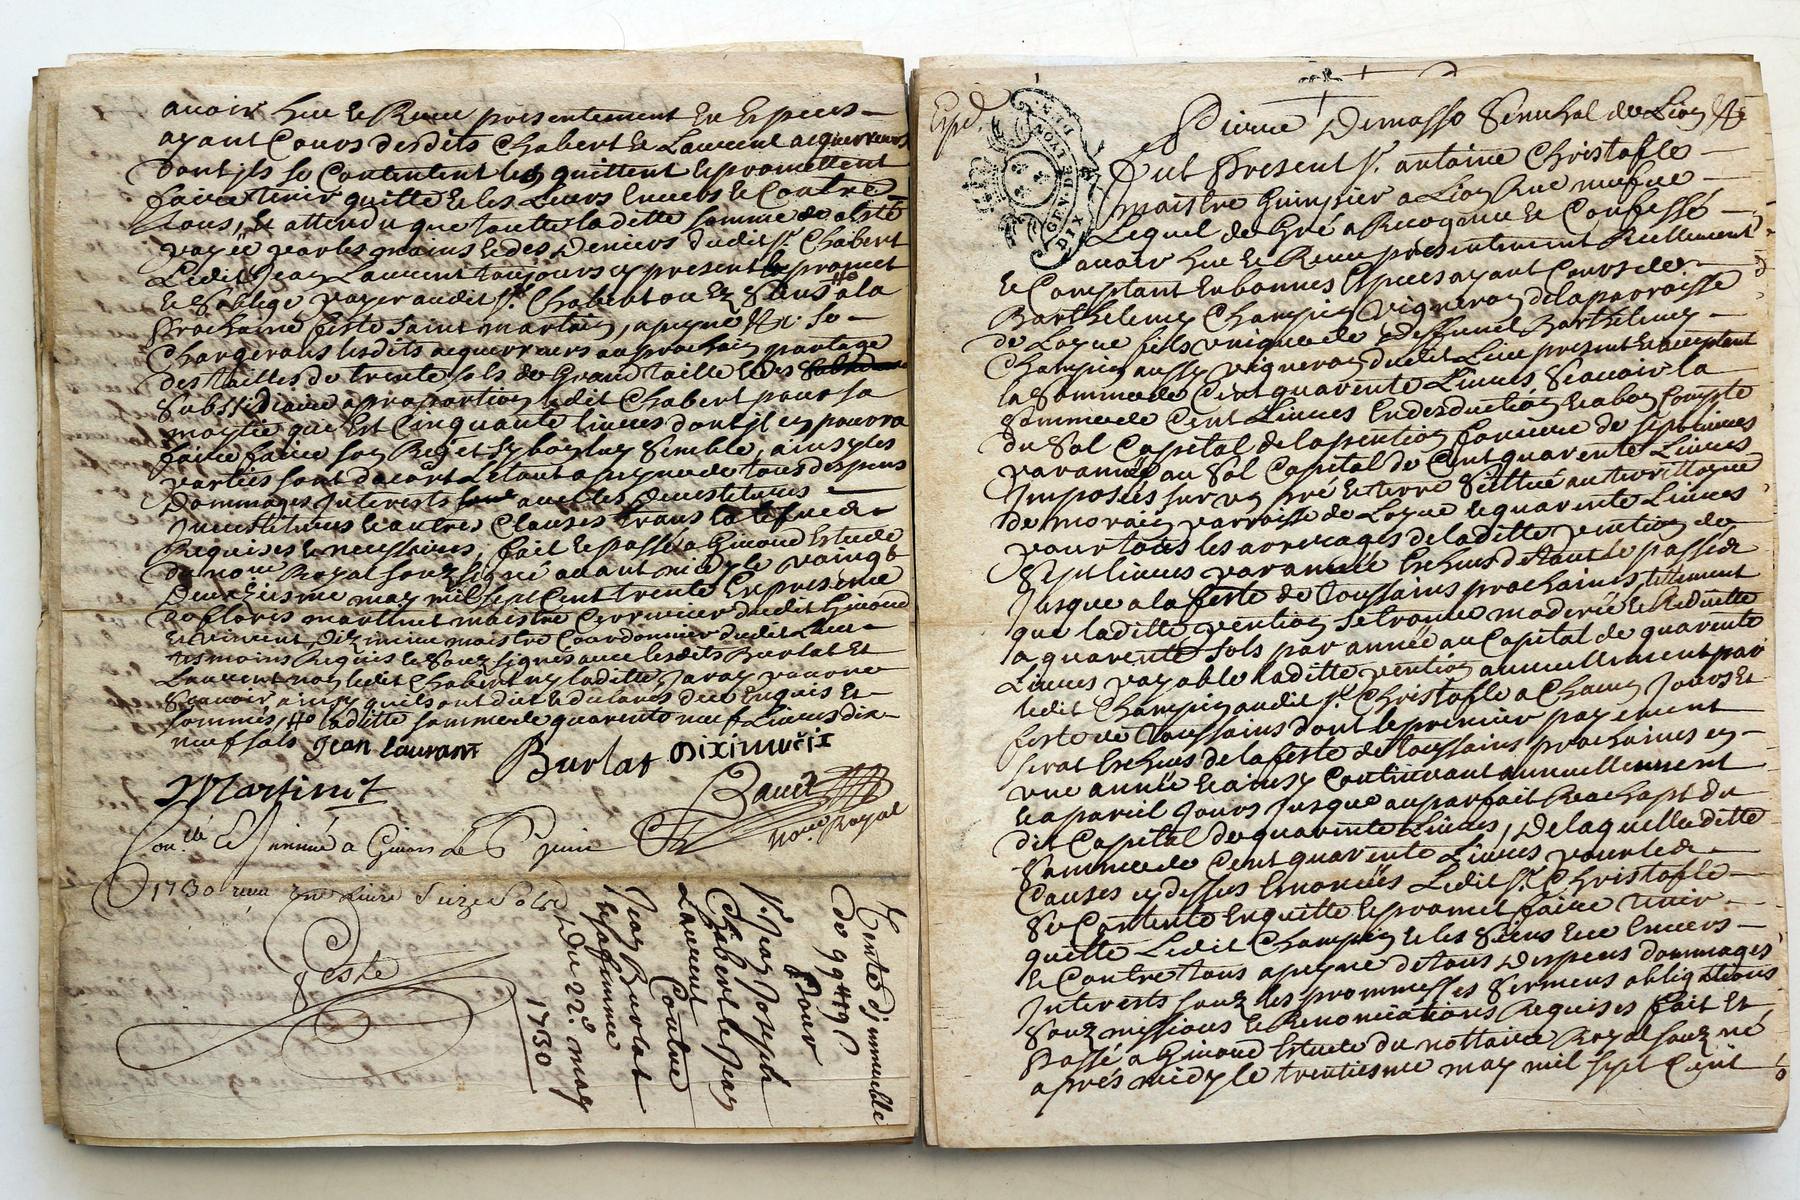 avoir heu et Receu presentement En Especes
ayant Cours desdits Chabert et Laurent acquerreurs
dont jls se Contentent les quittent et promettent
faire tenir quitte et les Leurs Envers et Contre
tous, et attendu que toutte laditte somme a esté
payée par les mains et des Deniers dudit Sr. Chabert
Ledit Jean Laurent toujours cy present promet
et S'oblige payer audit Sr. Chabert ou Ez Siens a la
prochaine feste Saint martin, a peyne &c. Se
Chargeront lesdits acquerreurs au prochain partage
des tailles de trente sols de Grand taille et des
Subssidiaire a proportion ledit Chabert pour sa
moytié que Est Cinquante livres dont jl en pourra
faire faire son Rejet sy bon luy Semble, ainsy les
parties sont dacort Le tout a peyne de tous despens
Dommages Interests avec les Devestitures
Investitures et autres Clauses translatifve
Requises et necessaires, fait et passé a Givord Estude
du nore. Royal souz signé avant midy le vaingt
Deuxziesme may mil sept Cent trente En presence
de floris martinet maistre Serrurier dudit Givord
et vincent Diximieux maistre Cordonnier dudit Lieu
tesmoins Requis et Souz signés avec lesdits Burlat Et
Laurent non ledit Chabert ny laditte Javay pour ne
Scavoir, ainsy quils ont dit et declaré de ce Enquis Et
sommés, laditte somme de quarente neuf Livres dix
neuf sols Jean laurant Burlat Diximieux
Martinet Baud
nore. Royal
Con.llé Et Insinué a Givors Le 6 juin
1730 receu une Livre Seize Sols
Peste
Vente d'jmmeuble
de 99# 19s
Pour
Sr. Jean Joseph
Chabert et Jean
Laurent
Contre
Jean Burlat
et sa femme
Du 22e. may
1730
Expé.
GEN. DE LYON
DIX DEN.
Pierre Demasso Senechal de Lion &c
Fut Present Sr. antoine Christofle
maistre Guimpier a Lion Rue neufve
Lequel de Gré a Recognu Et Confessé
avoir heu et Receu presentement Reellement
et Comptant En bonnes Especes ayant Cours de
Barthelemy Champin vigneron de la parroisse
de Loyre fils unique de deffunct Barthelemy
Champin aussy vigneron dudit Lieu present Et acceptant
la Somme de Cent quarente Livres Scavoir la
Somme de Cent Livres En desduction et a bon Compte
du Sol Capital de la pention fonciere de sept livres
par année au Sol Capital de Cent quarente Livres
Imposées sur un pré et terre Scittué au territtoyre
de morain parroisse de Loyre et quarente Livres
pour touts les arrerages de laditte pention de
Sept livres par année Escheus de tout le passé et
Jusque a la feste de Toussains prochaines, tellement
que laditte pention se trouve moderée et Reduitte
a quarente Sols par année au Capital de quarente
Livres payable laditte pention annuellement par
ledit Champin audit Sr. Christofle a Chaun Jours Et
feste de Toussains dont le premier payement
serat Escheus de la feste de Toussains prochaines en
une année et ainsy Continuant annuellement
et a pareil Jours Jusque au parfait Reachapt du
dit Capital de quarente Livres, De laquelle ditte
Somme de Cent quarente Livres pour les
Causes cy dessus Enoncées Ledit Sr. Christofle
Se Contente En quitte et promet faire tenir
quitte Ledit Champin et les Siens Envers
et Contre tous a peyne de tous Despens dommages
Interests souz les prommesses Sermens obligations
Souz missions et Renonciations Requises fait Et
Passé a Givord Estude du nottaire Royal souz né
apres midy le trentiesme may mil sept Cent